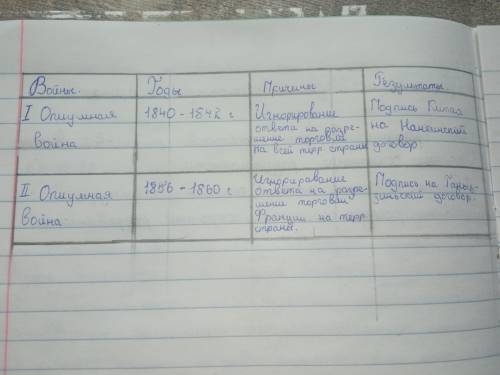 Войны. Годы Причины Результаты
I Опиумная война 1840 - 1842 г Игнорирование
ответа на разре-
шение торговли
на всей терр. страны Подпись Китая
на Нанкинский
договор.
II Опиумная
Война 1856 - 1860 г. Игнорирование
ответа на разре-
шение торговли
Франции на терр.
страны. Подпись на Тянь-
зиньский договор.